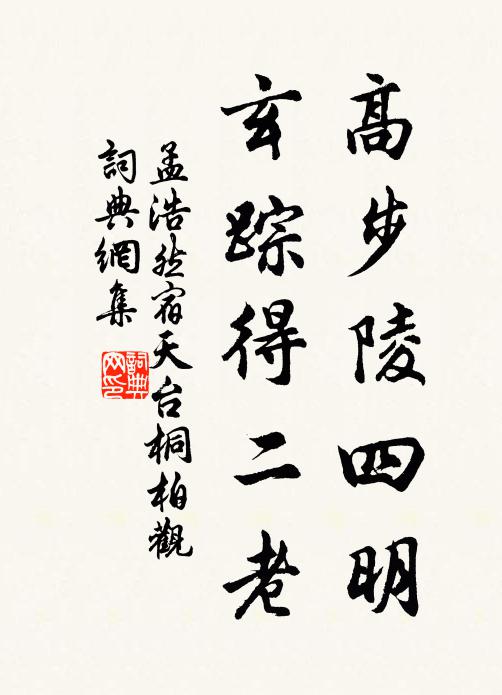 高步陵四明
玄踪得二老
孟浩然宿天台桐柏觀
詞典網集
詞典网印